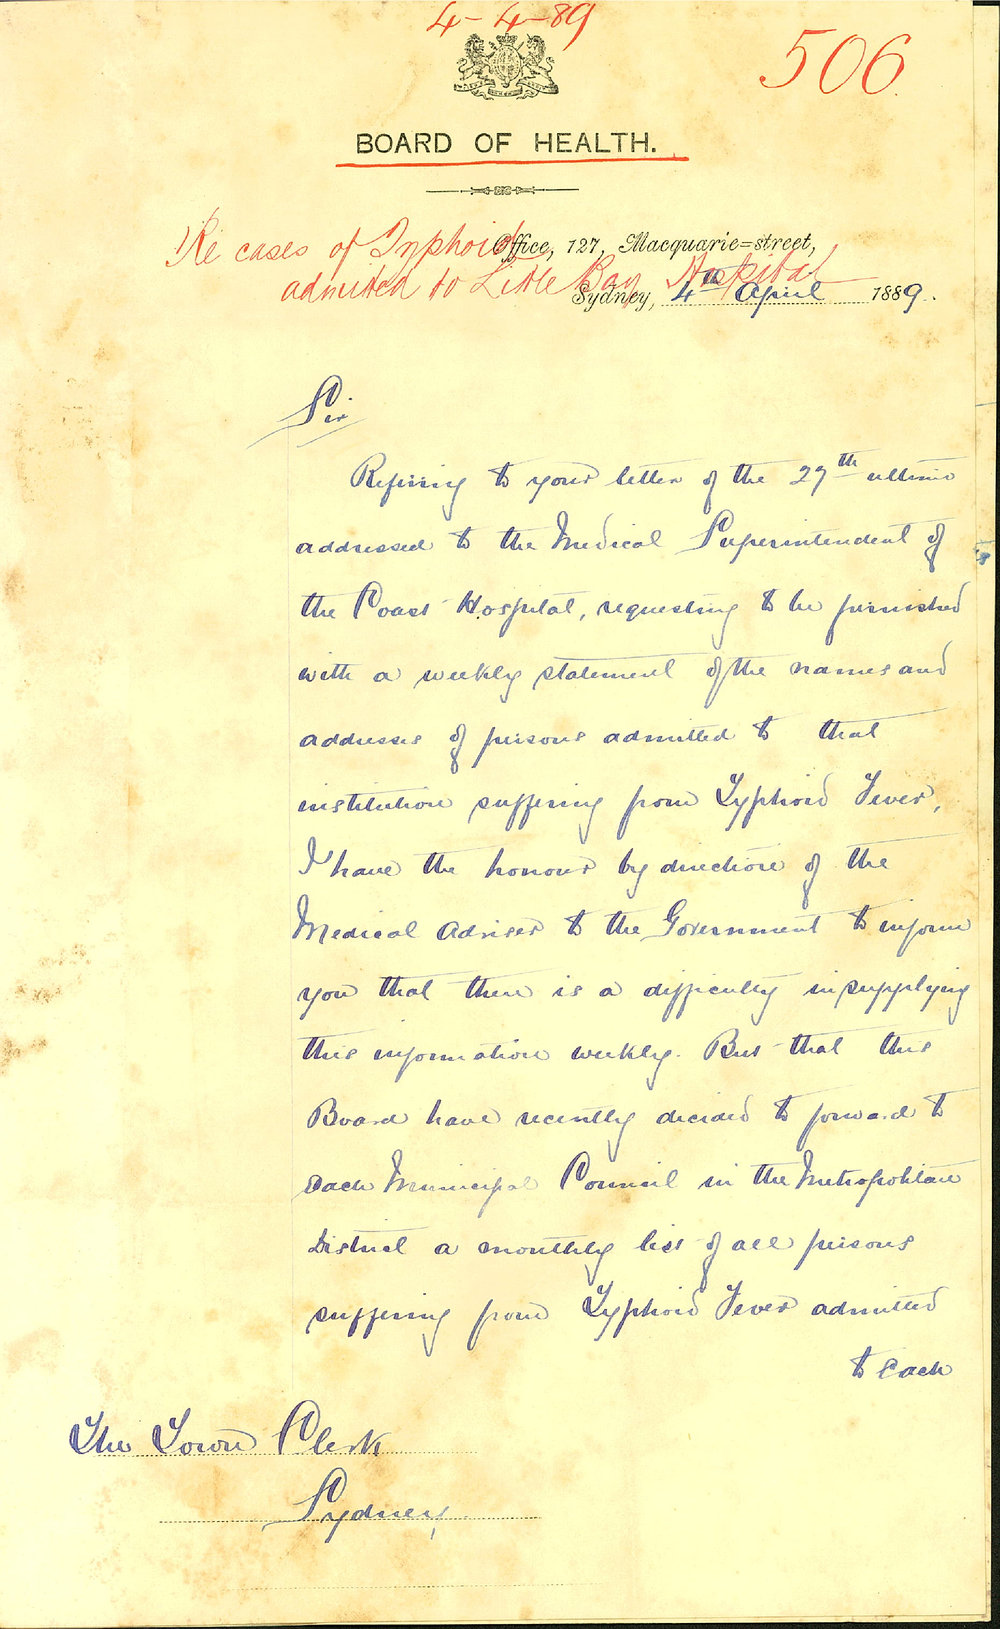 4-4-89
506
BOARD OF HEALTH.
Re cases of Typhoid
Office, 127, Macquarie=street,
admitted to Little Bay Hospital
Sydney, 4th April 1889.
Sir
Refering to your letter of the 27th ultimo
addressed to the Medical Superintendent of
the Coast Hospital, requesting to be furnished
with a weekly statement of the names and
addresses of persons admitted to that
institution suffering from Typhoid Fever,
I have the honour by direction of the
Medical Adviser to the Government to inform
you that there is a difficulty in supplying
this information weekly. But that this
Board have recently decided to forward to
each Municipal Council in the Metropolitan
District a monthly list of all persons
suffering from Typhoid Fever admitted
to each
The Town Clerk
Sydney